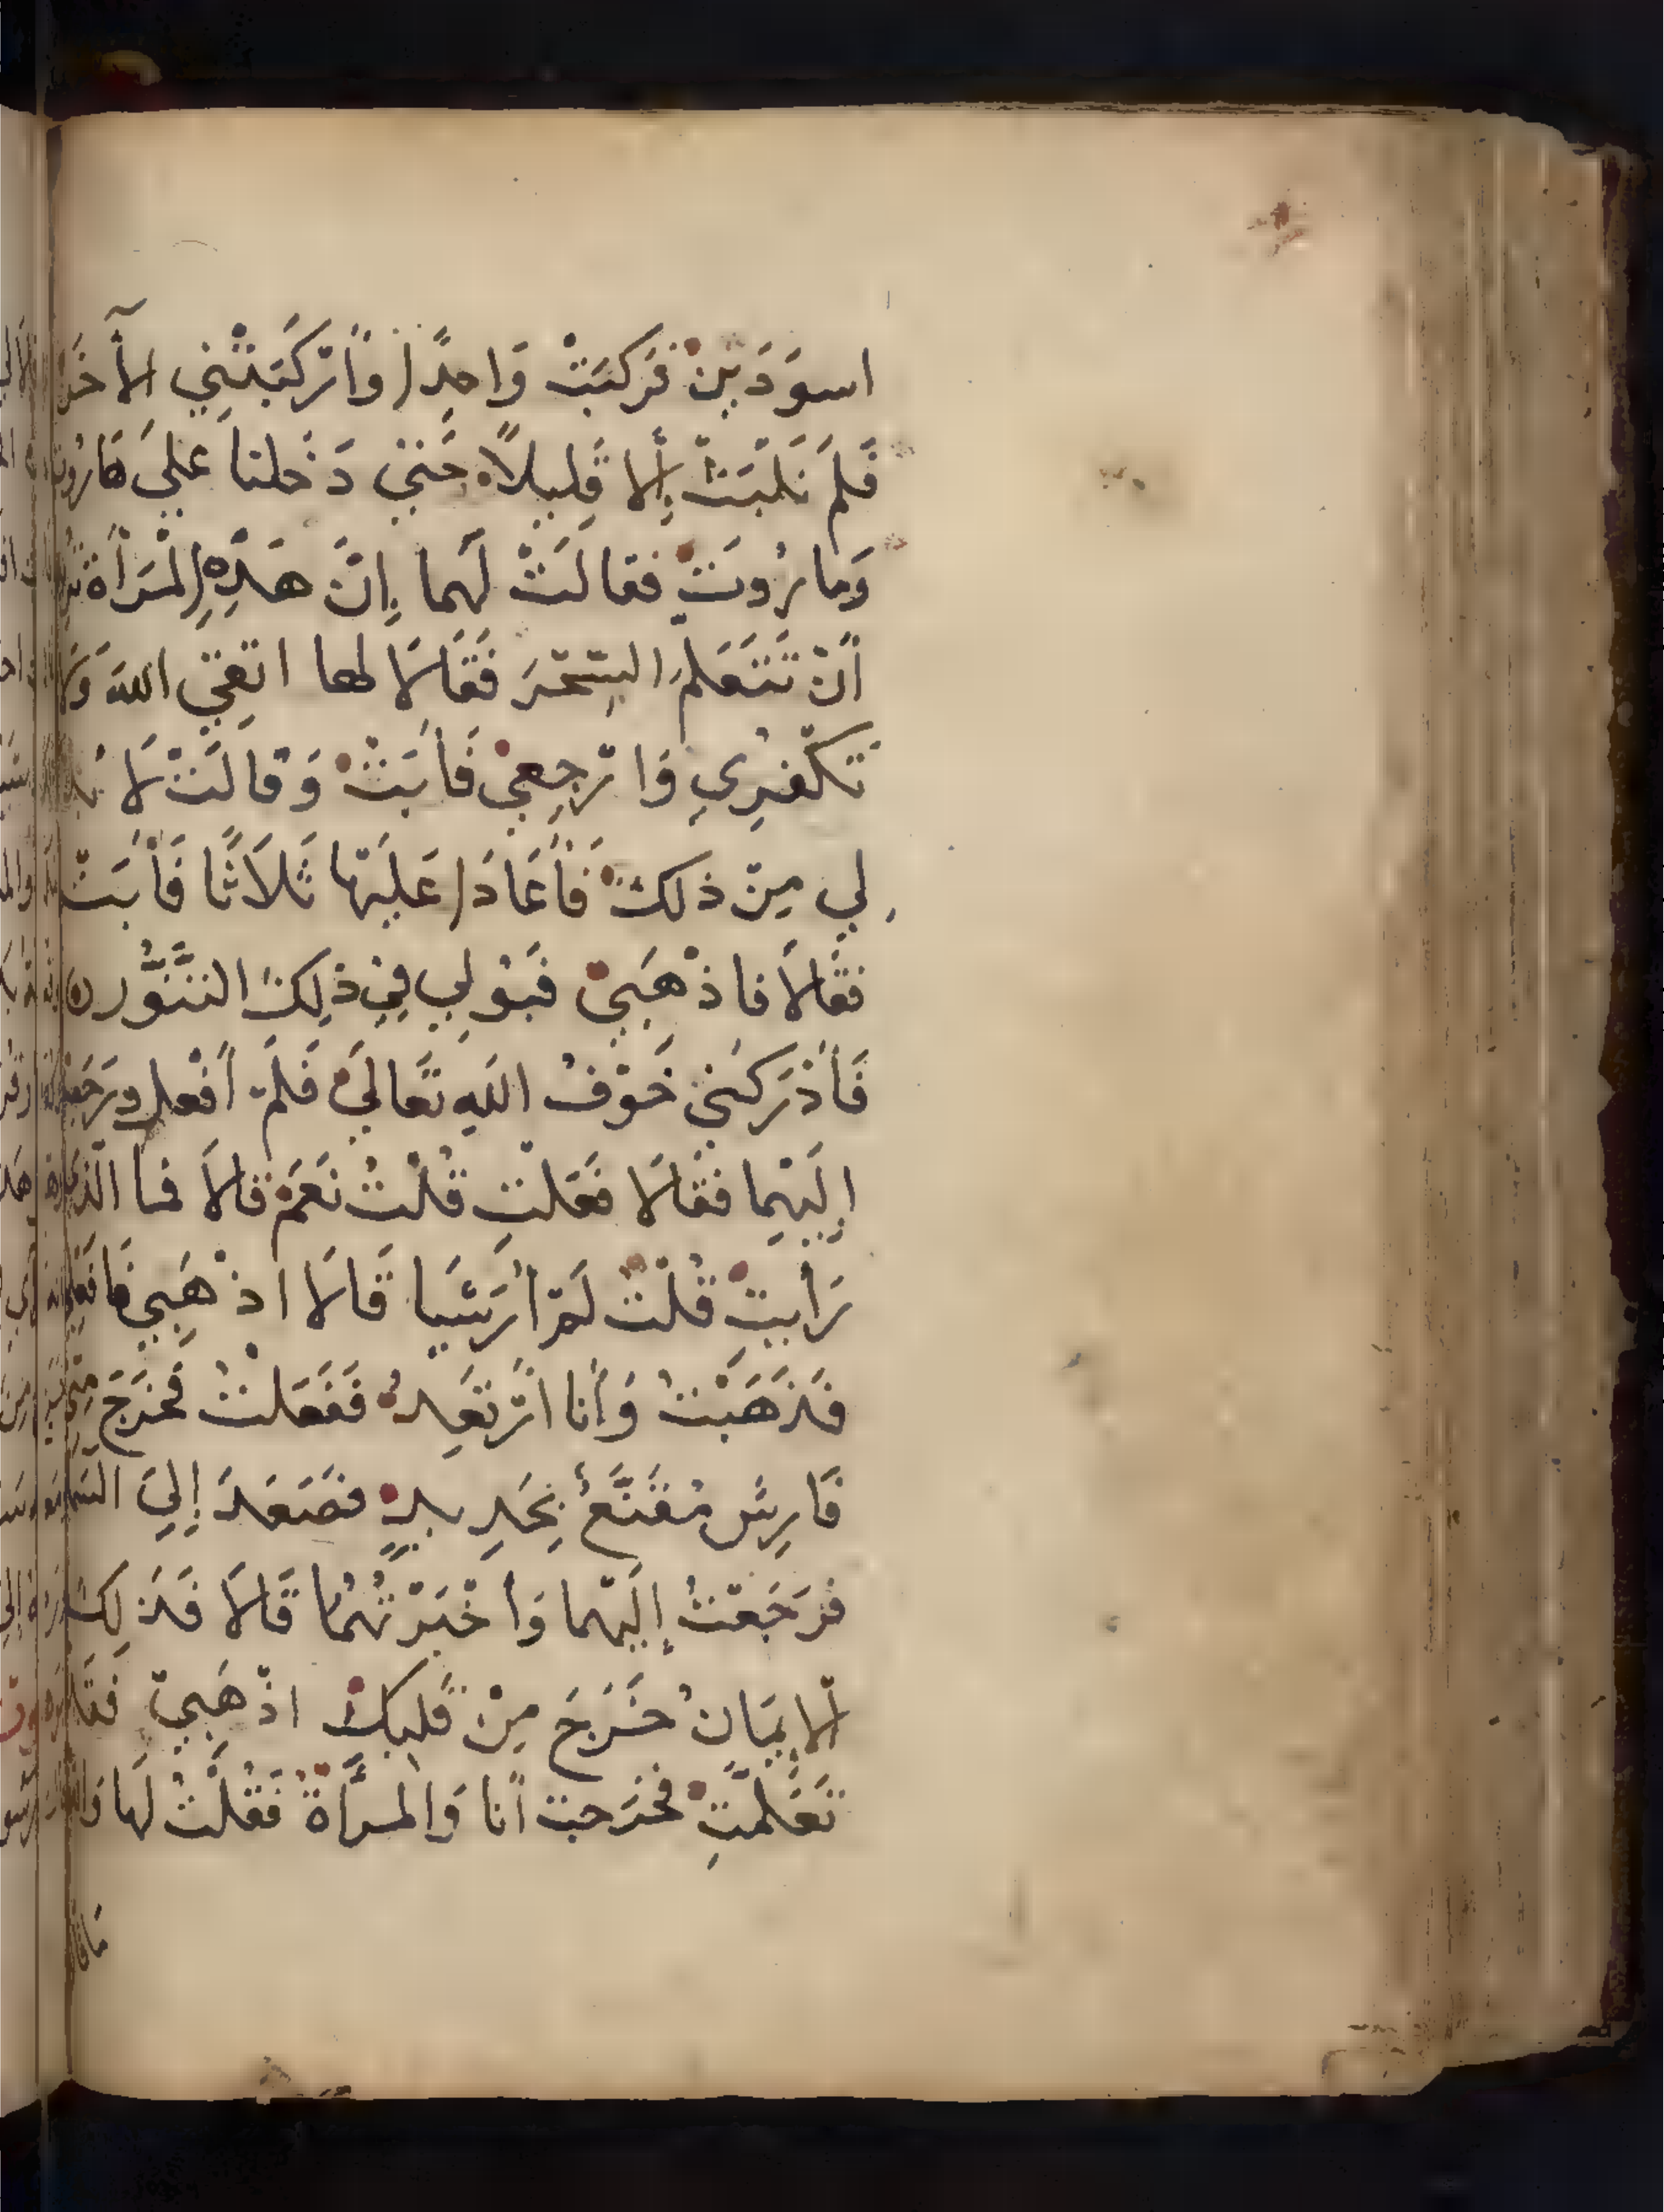 اسوَدَين فَركبَتْ وَاحِدًا وَأَرْكَبَتْنِي الْأٓخَرَ
فَلَم نَلْبَثْ إِلا قَلِيلًا حَتي دَخَلنا عَليَ هَارُوت
وَمارُوتَ فقالَتْ لَهما إِنَّ هَذِهِ الْمَرْأَة
أَنْ تَتَعَلمَ السِّحْرَ فَقَالَا لها اتقِي اللهَ وَلَا
تَكْفُرِي وَارْجِعِي فَأَبَتْ وَقالَتْ لَا بُدَّ
لِي مِنْ ذلكَ فَأَعَادَا عَلَيْهَا ثَلَاثًا فَأَبَتْ
فقالَا فاذْهَبِيْ فَبُولِي فِي ذلِكَ التَّنُّور
فَأَدْرَكَنِي خَوْفُ اللهِ تَعَالَي فَلَمْ أَفْعل وَرَجَعْتُ
إِلَيْهِما فَقَالَا فَعَلتِ قُلْتُ نَعَمْ قالَا فما الَّذِي
رَأيتِ قُلْتُ لَمْ أرَشَيا قَالَا اذْهَبِي فَافعَلِي
فَذَهَبْتُ وَأنا أَرْتَعِدُ فَفَعَلْتُ فَخَرَجَ مِنِّي
فَارِسٌ مُقَنَّعٌ بِحَدِيدٍ فصَعَدَ إِليَ السَّمَا
فرَجَعْتُ إِلَيْهما وَأخْبَرْتُهُما قَالَا فَذَلِكَ
الْإِيمَانُ خَرَجَ مِنْ قَلبكِ اذْهَبِيْ فَقَد
تَعَلَّمْتِ فخَرَجت أَنا وَالمرْأَةُ فَقُلْتُ لَها وَاللهِ
مَا